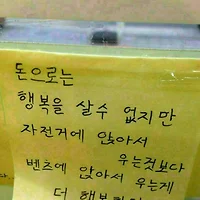 돈으로는
행복을 살수 없지만
자전거에 앉아서
우는것보다
벤츠에 앉아서 우는게
더